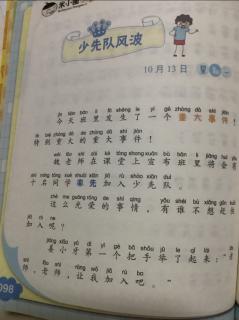 米小圈
少先队风波
10月13日 星期一
jīn tiān bān lǐ fā shēng le yí gè zhòng dà shì jiàn
今天班里发生了一个重大事件！
tè bié zhòng dà de zhòng dà shì jiàn
特别重大的重大事件！
wèi lǎo shī zài kè táng shàng xuān bù bān lǐ jiāng huì yǒu
魏老师在课堂上宣布班里将会有
shí míng tóng xué shuài xiān jiā rù shào xiān duì
十名同学率先加入少先队。
zhè me guāng róng de shì qing yǒu shéi bù xiǎng
这么光荣的事情，有谁不想赶快
jiā rù ne
加入呢？
jiāng xiǎo yá dì yī gè bǎ shǒu jǔ le qǐ lái
姜小牙第一个把手举了起来：“老
shī lǎo shī ràng wǒ jiā rù ba
师，老师，让我加入吧。”
098